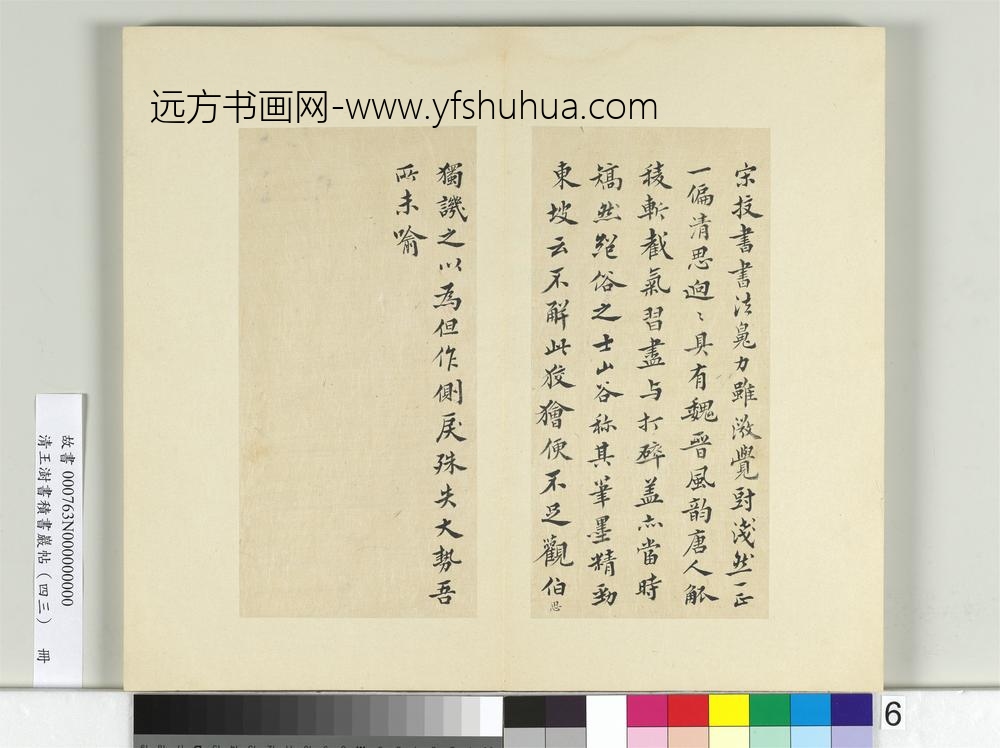 远方书画网-www.yfshuhua.com
宋拔書書法鳧力雖㴲覺尌淺然一正
一偏清思迥〻具有魏晉風韵唐人觚
稜斬截氣習盡与打碎盖亦當時
矯然絕俗之士山谷称其筆墨精勁
東坡云不解此狡獪便不足觀伯
思
獨譏之以為但作側戾殊失大勢吾
所未喻
故書 000763N000000000
清王澍書積書巖帖（四三） 冊
6